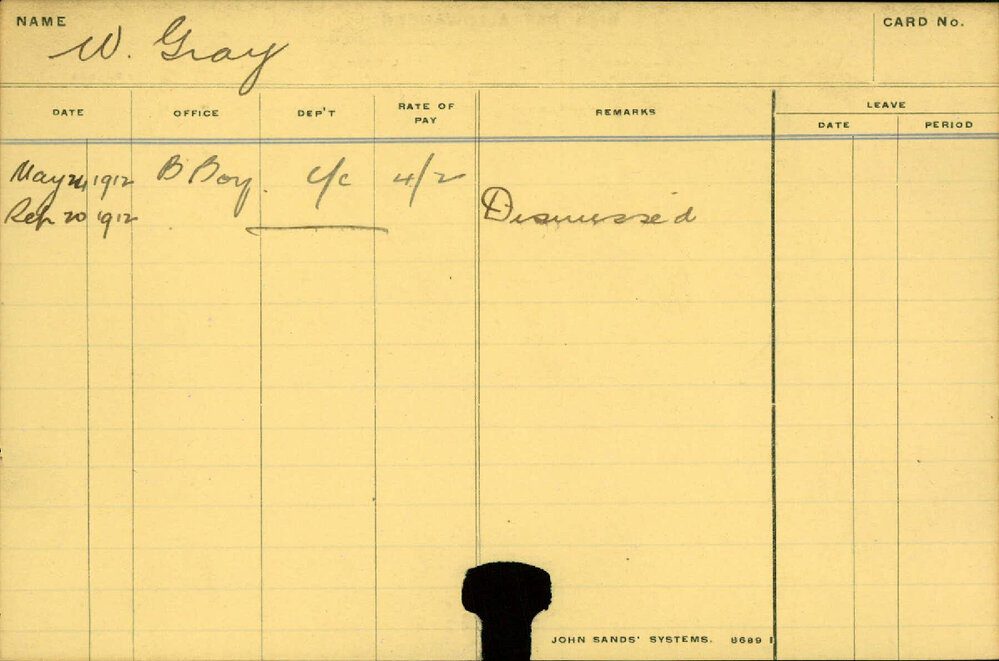 NAME W. Gray CARD No.
DATE OFFICE DEP'T RATE OF PAY REMARKS LEAVE
DATE PERIOD
May 24 1912 B Boy c/c 4/2
Sep 20 1912 Dismissed
JOHN SANDS' SYSTEMS. 8689